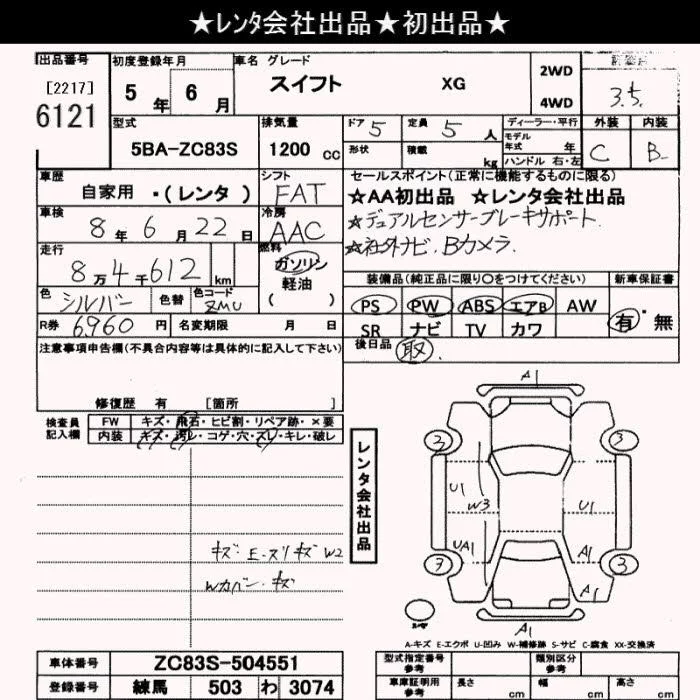 ★レンタ会社出品★初出品★
出品番号 初度登録年月 車名 グレード
[2217] 6121 5年 6月 スイフト XG 2WD 4WD 3.5
型式 排気量 ドア 5 定員 5人 ディーラー・平行 外装 内装
5BA-ZC83S 1200 cc 形状 積載 kg モデル年式 年 ハンドル 右・左 C B-
車歴 シフト セールスポイント(正常に機能するものに限る)
自家用 ・(レンタ) FAT ☆AA初出品 ☆レンタ会社出品
車検 8年 6月 22日 冷房 AAC ☆デュアルセンサーブレーキサポート
走行 燃料 ☆社外ナビ. Bカメラ.
8万4千612 km ガソリン 軽油 ( )
装備品(純正品に限り○をつけてください) 新車保証書
色 シルバー 色替 色コード ZMU PS PW ABS エアB AW 有・無
R券 6960円 名変期限 月 日 SR ナビ TV カワ
注意事項申告欄(不具合内容等は具体的に記入して下さい) 後日品 取.
修復歴 有 [箇所 ]
検査員記入欄 FW キズ・飛石・ヒビ割・リペア跡・×要
内装 キズ・汚レ・コゲ・穴・スレ・キレ・破レ
レンタ会社出品
A1
3 3
U1 W3 U1
UA1 A1
3 3
A1 A1
キズ E-スリキズ W2
Wカバー・キズ
A-キズ E-エクボ U-凹み W-補修跡 S-サビ C-腐食 XX-交換済
車体番号 ZC83S-504551 型式指定番号 参考 類別区分 参考
登録番号 練馬 503 わ 3074 車庫証明用 参考 長さ cm 幅 cm 高さ cm